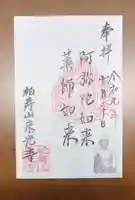 奉拝
令和元年
十月三十日
阿弥陀如来
薬師如来
柏寿山来光寺